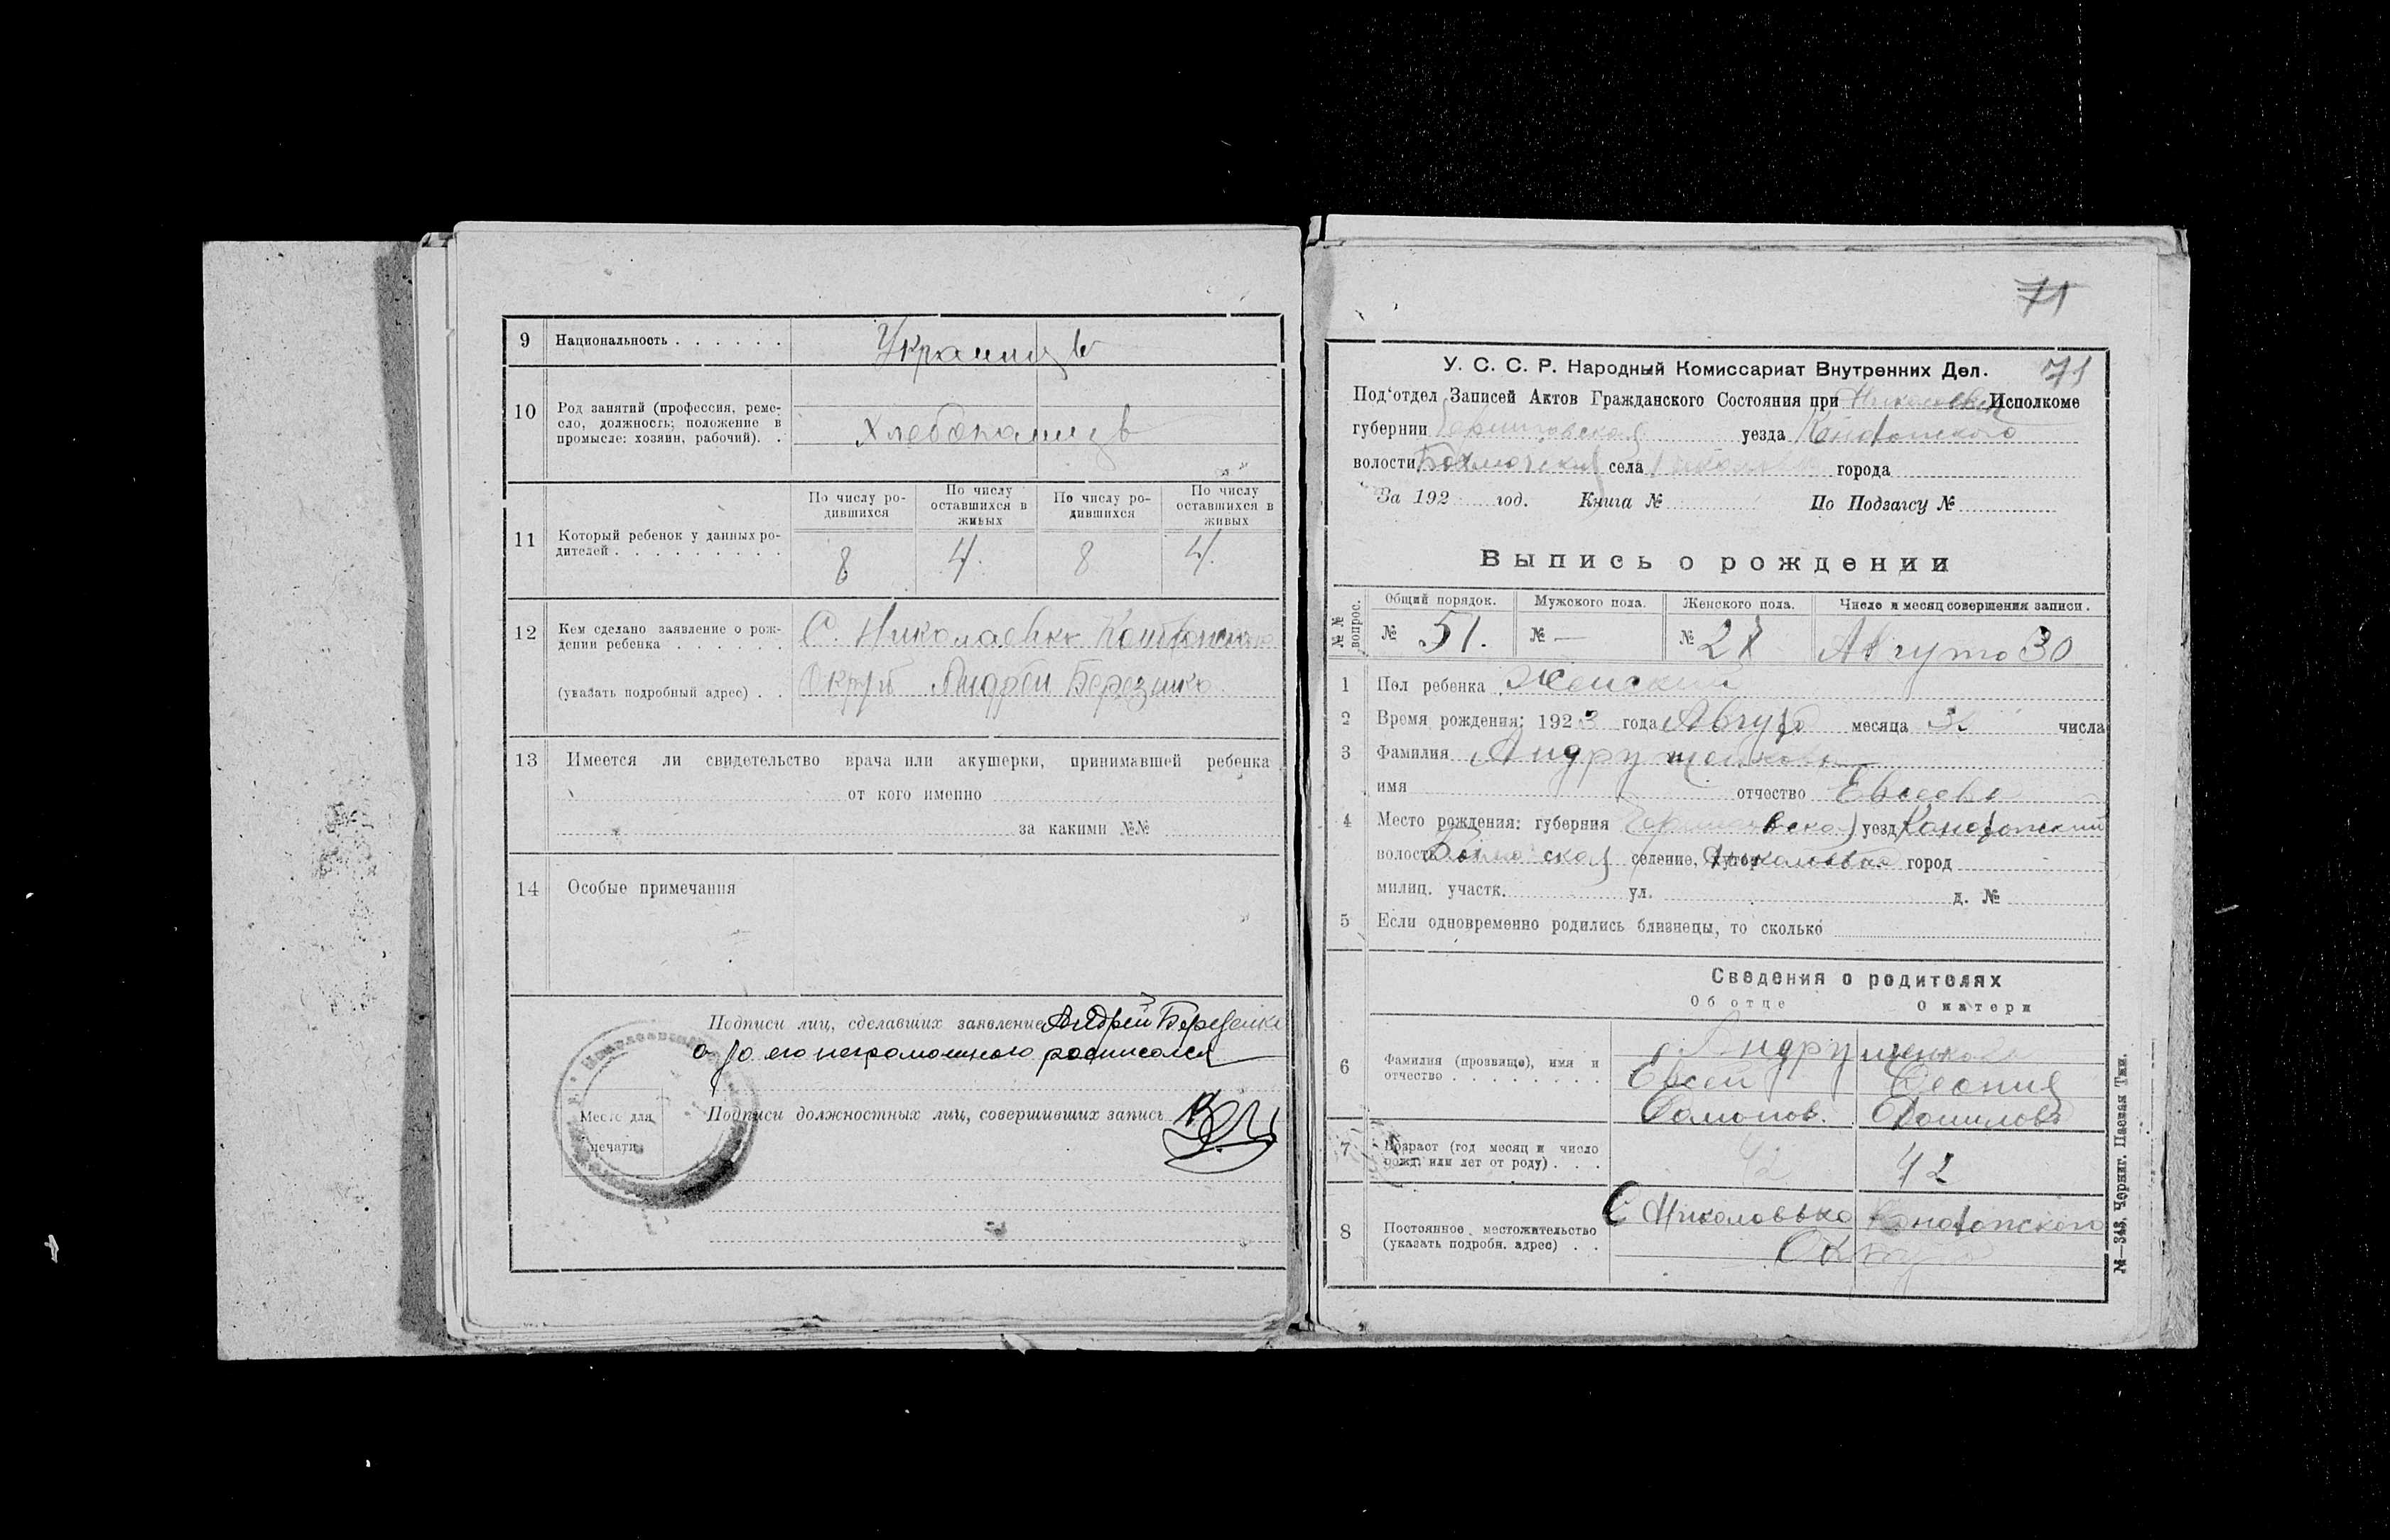 9 Национальность . . . . . . Украинцы
10 Род занятий (профессия, реме-
сло, должность; положение в
промысле: хозяин, рабочий). . Хлебопашцы
11 Который ребенок у данных ро-
дителей . . . . . . . . .
По числу ро-
дившихся
По числу
оставшихся в
живых
По числу ро-
дившихся
По числу
оставшихся в
живых
8 4. 8 4.
12 Кем сделано заявление о рож-
дении ребенка . . . . . .
(указать подробный адрес) . .
С. Николаевка Конотопского
Округ Андрей Березенко
13 Имеется ли свидетельство врача или акушерки, принимавшей ребенка
от кого именно
за какими №№
14 Особые примечания
Подписи лиц, сделавших заявление Андрей Березенко
а за его неграмотного росписался
Место для
печати
Подписи должностных лиц, совершивших запись
71
У. С. С. Р. Народный Комиссариат Внутренних Дел. 71
Под‘отдел Записей Актов Гражданского Состояния при Исполкоме
губернии Черниговская уезда Конотопского
волости села города
За 192 год. Книга № По Подзагсу №
Выпись о рождении
№№ вопрос.
Общий порядок. Мужского пола. Женского пола. Число и месяц совершения записи.
№ 51. № — № Августа 30
1 Пол ребенка Женский
2 Время рождения: 1923 года месяца числа
3 Фамилия Андрущенкова
имя отчество Евсеева
4 Место рождения: губерния Черниговская уезд Конотопский
волость селение, хутор город
милиц. участк. ул. д. №
5 Если одновременно родились близнецы, то сколько
Сведения о родителях
Об отце О матери
6 Фамилия (прозвище), имя и
отчество . . . . . . . . .
Андрущенкова
Евсей
Самонов. Данилова
7 Возраст (год месяц и число
рожд. или лет от роду) . . . 42 42
8 Постоянное местожительство
(указать подробн. адрес) . .
С Николовька Конотопского
Округа
№—343. Черниг. Паевая Тип.